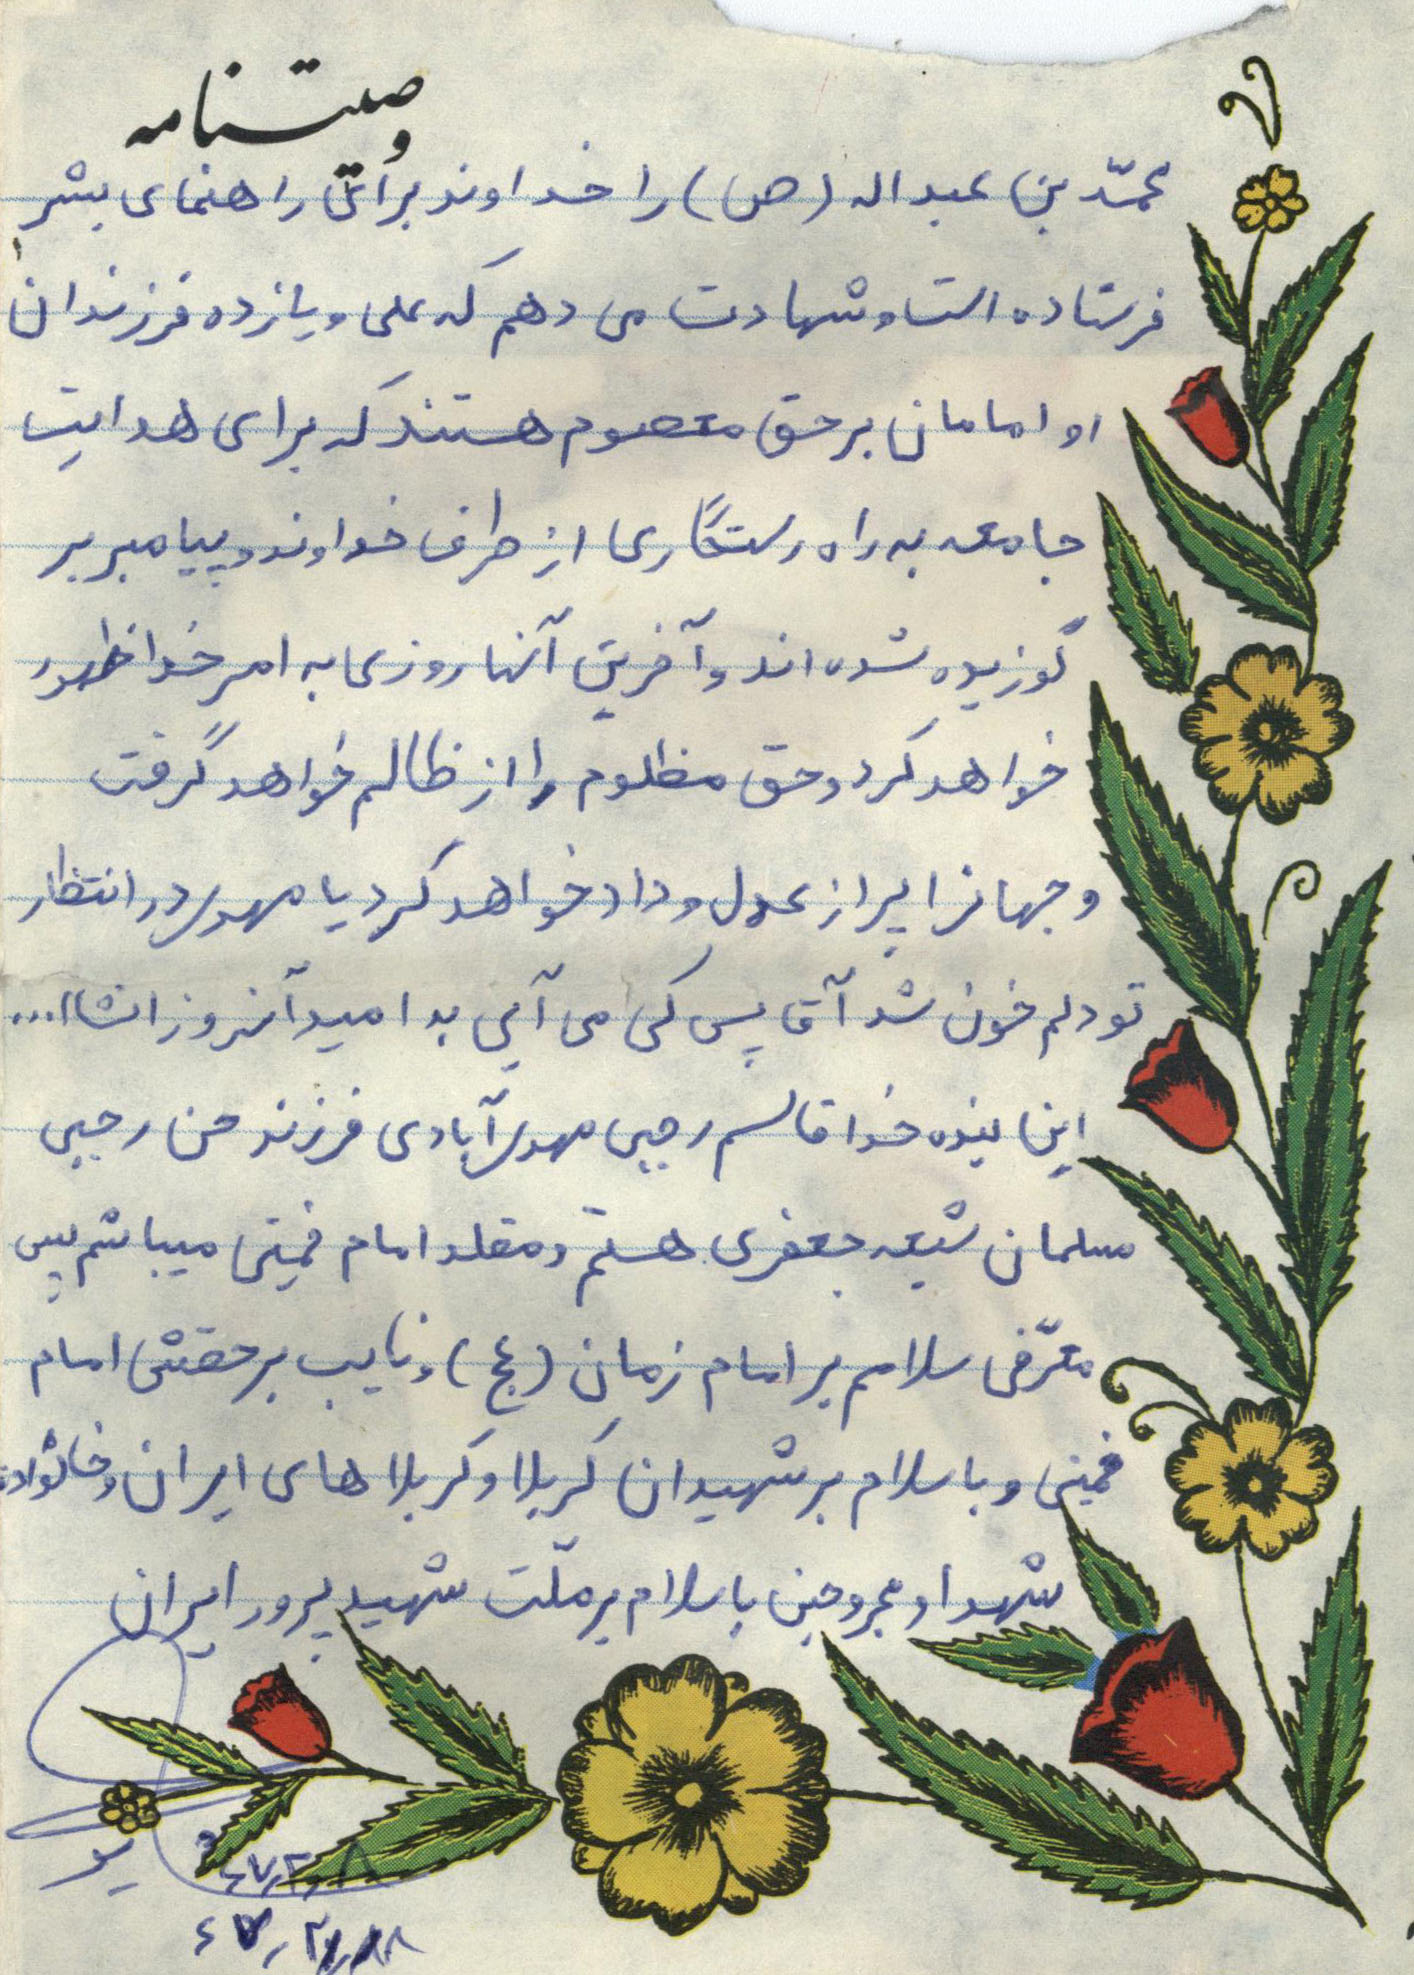 وصیتنامه
محمّد بن عبداله (ص) را خداوند برای راهنمای بشر
فرستاده است و شهادت می دهم که علی و یازده فرزندان
او امامان بر حق معصوم هستند که برای هدایت
جامعه به راه رستگاری از طرف خداوند و پیامبر بر
گوزیده شده اند و آخرین آنها روزی به امر خدا ظهور
خواهد کرد و حق مظلوم را از ظالم خواهد گرفت
و جهانرا پر از عدل و داد خواهد کرد یا مهدی در انتظار
تو دلم خون شد آقا پس کی می آیی به امید آنروز انشاا...
این بنده خدا قاسم رجبی مهدی آبادی فرزند حسن رجبی
مسلمان شیعه جعفری هستم و مقلد امام خمینی میباشم پس
معرّفی سلامم بر امام زمان (عج) و نایب برحقش امام
خمینی و با سلام بر شهیدان کربلا و کربلا های ایران و خانواده
شهدا و مجروحین با سلام بر ملّت شهید پرور ایران